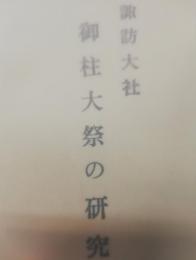 諏訪大社
御柱大祭の研究